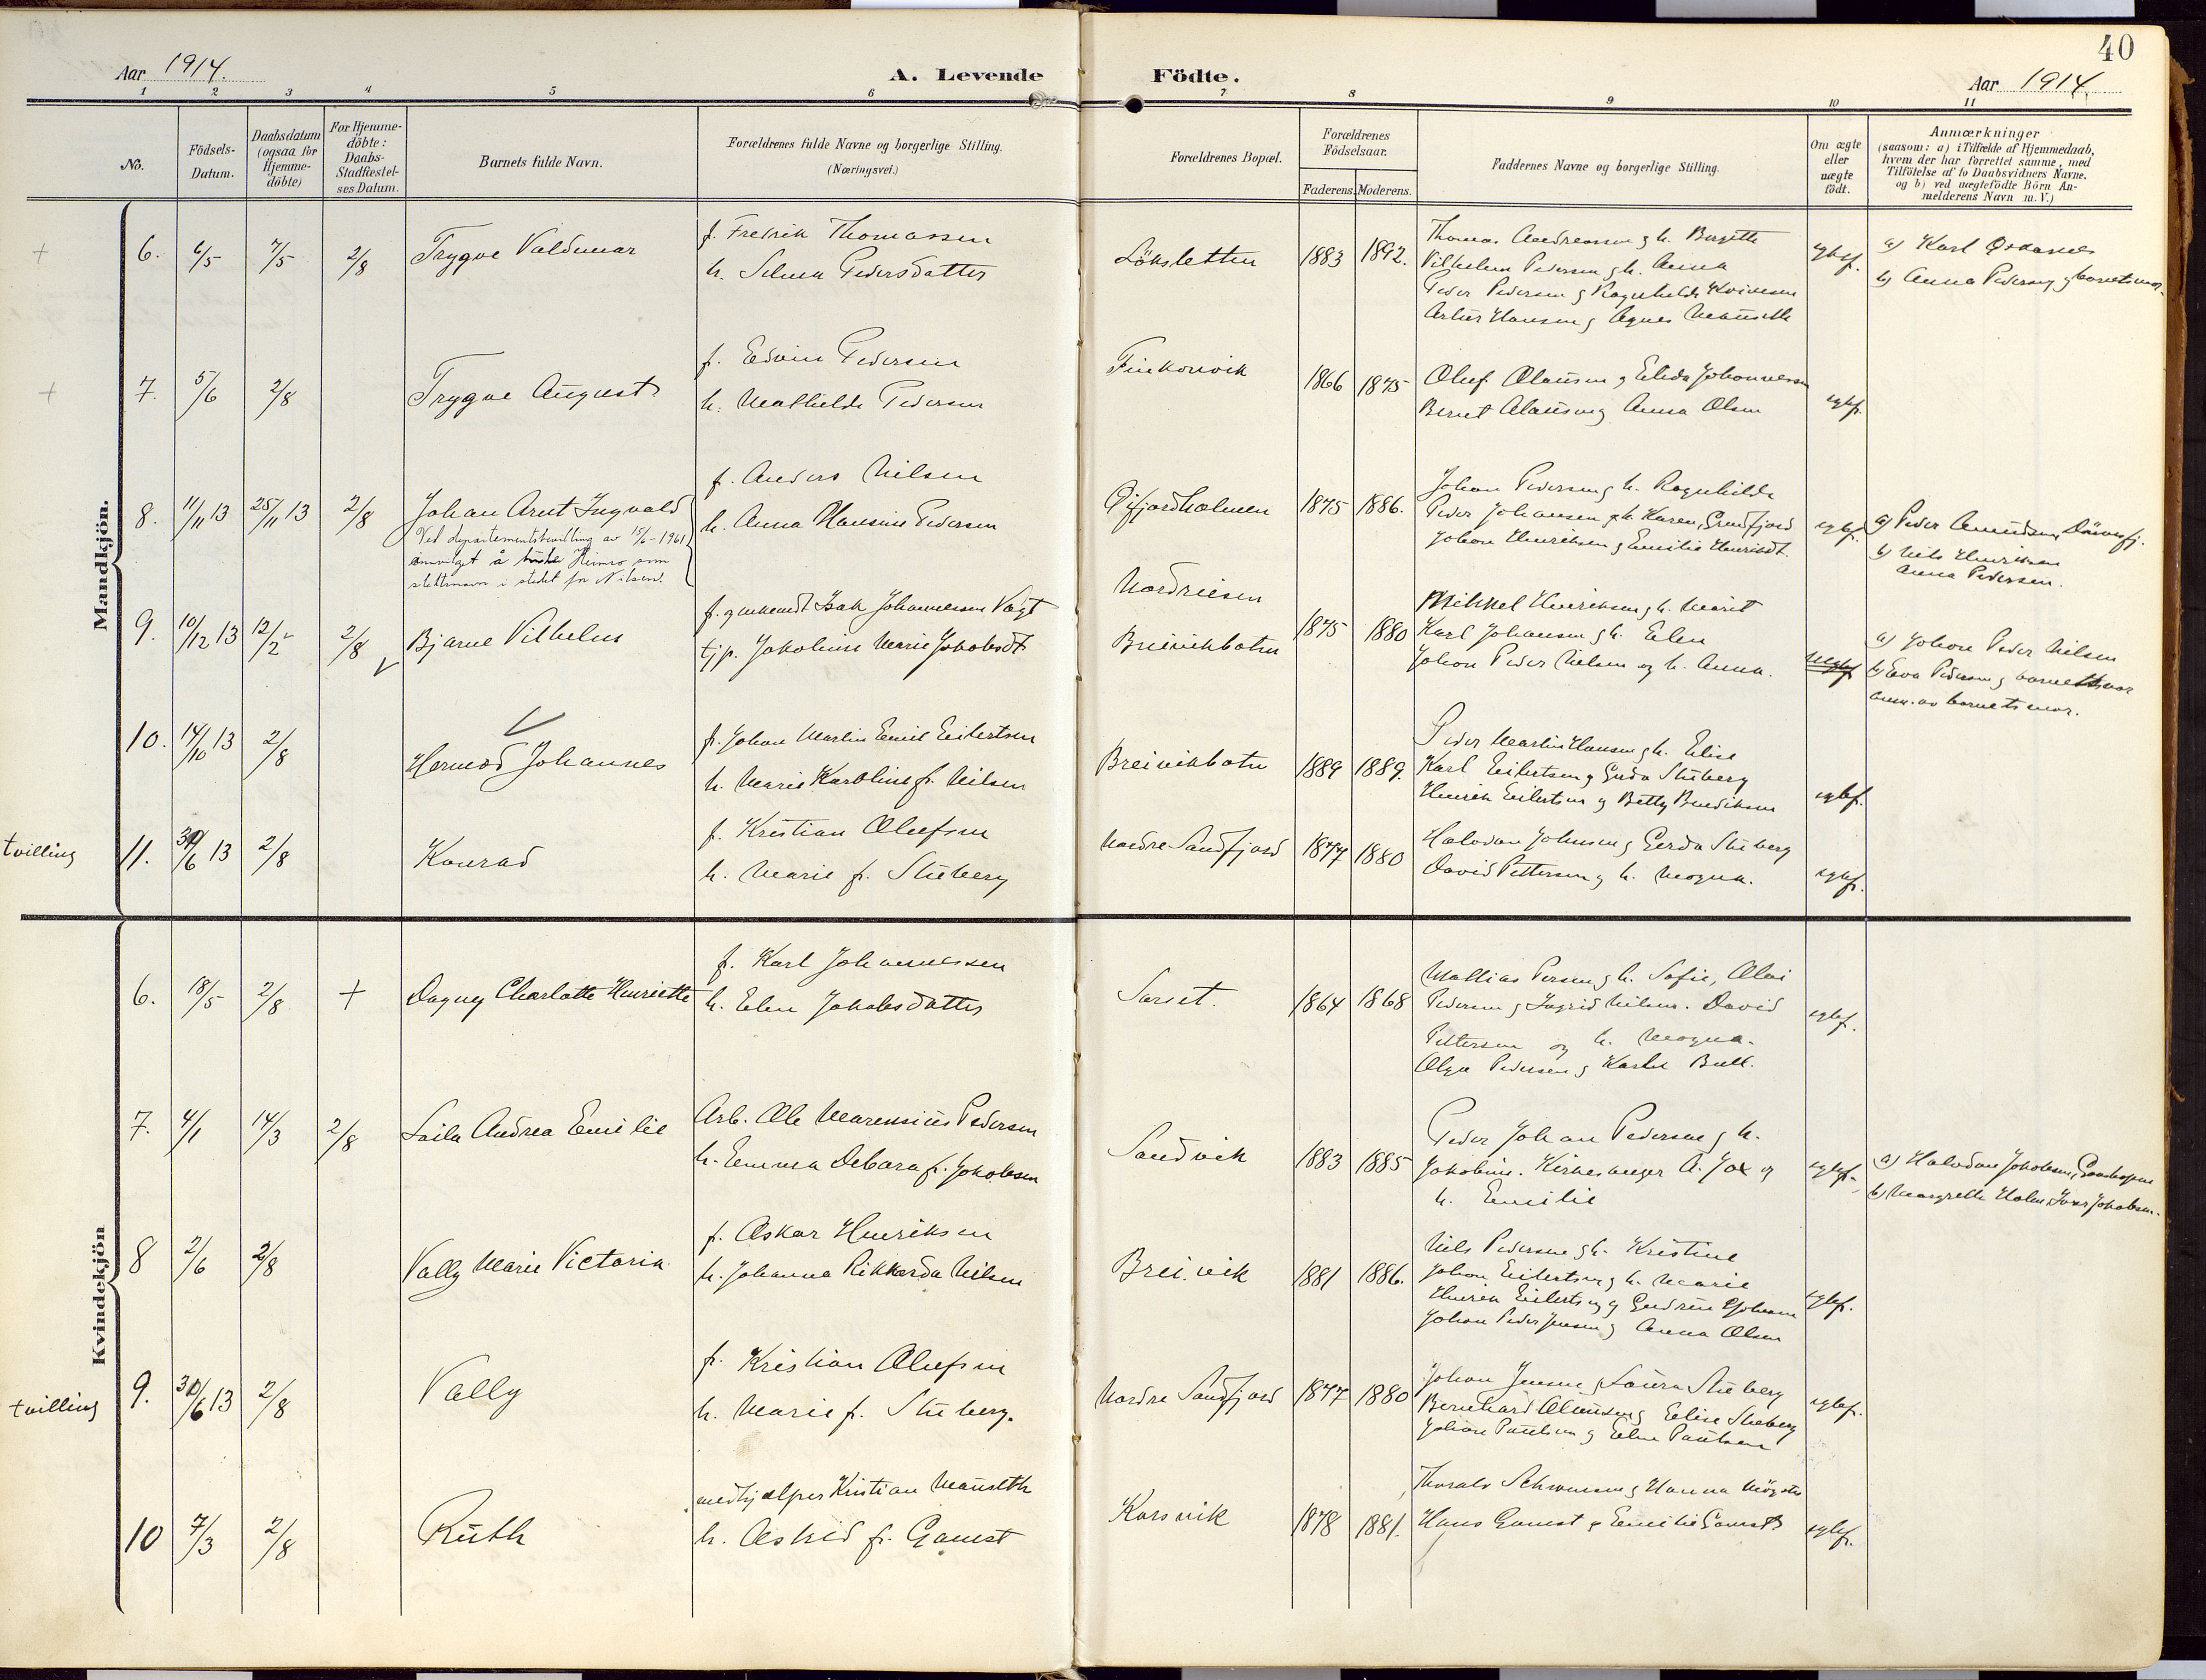 40
Aar 1914.
A. Levende Födte.
Aar 1914.
1 2 3 4 5 6 7 8 9 10 11
No.
Födsels-Datum.
Daabsdatum (ogsaa for Hjemme-döbte)
For Hjemme-döbte: Daabs-Stadfæstel-ses Datum.
Barnets fulde Navn.
Forældrenes fulde Navne og borgerlige Stilling. (Næringsvei.)
Forældrenes Bopæl.
Forældrenes Födselsaar.
Faderens. Moderens.
Faddernes Navne og borgerlige Stilling.
Om ægte eller uægte födt.
Anmærkninger
(saasom: a) i Tilfælde af Hjemmedaab,
hvem der har forrettet samme, med
Tilföielse af to Daabsvidners Navne.
og b) ved uægtefödte Börn An-
melderens Navn m. V.)
Mandkjön.
+ 6. 6/5 7/5 2/8 Trygve Valdemar
f. Fredrik Thomassen
h. Selma Pedersdatter
Löksletten 1883 1892.
Thomas Andreassen g h. Bergitte
Vilhelm Pedersen g h. Anna
Peder Pedersen g Ragnhilda
Artur Hansen g Agnes Mauseth
egtef.
a) Karl
b) Anna Pedersen g barnets mor.
+ 7. 5/6 2/8 Trygve August
f. Edvin Pedersen
h. Mathilde Pedersen
Finkonvik 1866 1875
Oluf Olausen g Elida Johannessen
Bernt Olausen g Anna Olsen
egtef.
8. 11/11 13 25/11 13 2/8 Johan Arnt Ingvald
Ved departementsbevilling av 15/6-1961
innvilget å Heimro som
slektsnavn i stedet for Nilsen.
f. Anders Nilsen
h. Anna Hansine Pedersen
Öfjordholmen 1875 1886.
Johan Pedersen g h. Ragnhilda
Peder Johansen g h. Karen,
Johan Henriksen g Emilie Henriksdt.
egtef.
a) Peder Amundsen,
b) Nils Henriksen
Anna Pedersen.
9. 10/12 13 12/2 2/8 Bjarne Vilhelm
f. Isak Johannessen Vogt
tjp. Jakobine Marie Jakobsdt
Nordreisen
Breivikbotn
1875 1880
Mikkel Henriksen g h. Marit
Karl Johansen g h. Elen
Johan Peder Nilsen og h. Anna.
uegtef
a) Johan Peder Nilsen
b) Eva Pedersen g barnets mor
anm. av barnets mor.
10. 14/10 13 2/8 Hermod Johannes
f. Johan Martin Emil Eilertsen
h. Marie Karoline f. Nilsen
Breivikbotn 1889 1889.
Peder Martin Hansen g h. Elise
Karl Eilertsen g Gerda Stüberg
Henrik Eilertsen g Betty Bendiksen
egtef.
tvilling 11. 30/6 13 2/8 Konrad
f. Kristian Olufsen
h. Marie f. Stüberg
Nordre Sandfjord 1877 1880
Halvdan Johnsen g Gerda Stüberg
David Pettersen g h. Magna.
egtef.
Kvindekjön
6. 18/5 2/8 + Dagny Charlotte Henriette
f. Karl Johannessen
h. Elen Jakobsdatter
Sarset. 1864 1868
Mathias Persen g h. Sofie,
Pedersen g Ingrid Nilsen. David
Pettersen og h. Magna.
Olga Pedersen g Bull.
egtef.
7. 4/1 14/3 2/8 Laila Andrea Emilie
Arb. Ole Marensius Pedersen
h. Emma Debora f. Jakobsen
Sandvik 1883 1885
Peder Johan Pedersen g h.
Jakobine. Kirkesanger A. og
h. Emilie
egtef.
a) Halvdan Jakobsen,
b) Margrethe Holm, Jakobsen.
8 2/6 2/8 Vally Marie Victoria
f. Oskar Henriksen
h. Johanna Rikkarda Nilsen
Breivik 1881 1886.
Nils Pedersen g h. Kristine
Johan Eilertsen g h. Marie
Henrik Eilertsen g Gudrun
Johan Peder Jensen g Anna Olsen
egtef.
tvilling 9. 30/6 13 2/8 Vally
f. Kristian Olufsen
h. Marie f. Stüberg.
Nordre Sandfjord 1877 1880
Johan Jensen g Laura Stüberg
Bernhard Olausen g Elise Stüberg
Johan Paulsen g Elen Paulsen
egtef.
10 7/3 2/8 Ruth
medhjælper Kristian Mauseth
h. Astrid f. Gamst
Korsvik 1878 1881.
Thorals g Hanna
Hans Gamst g Emilie Gamst
egtef.